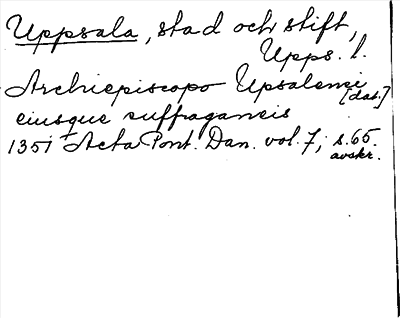 Uppsala, stad och stift,
Upps. l.
Archiepiscopo Upsalensi
[dat.]
eiusque suffraganeis
1351 Acta Pont. Dan. vol. 7, s. 65.
avskr.